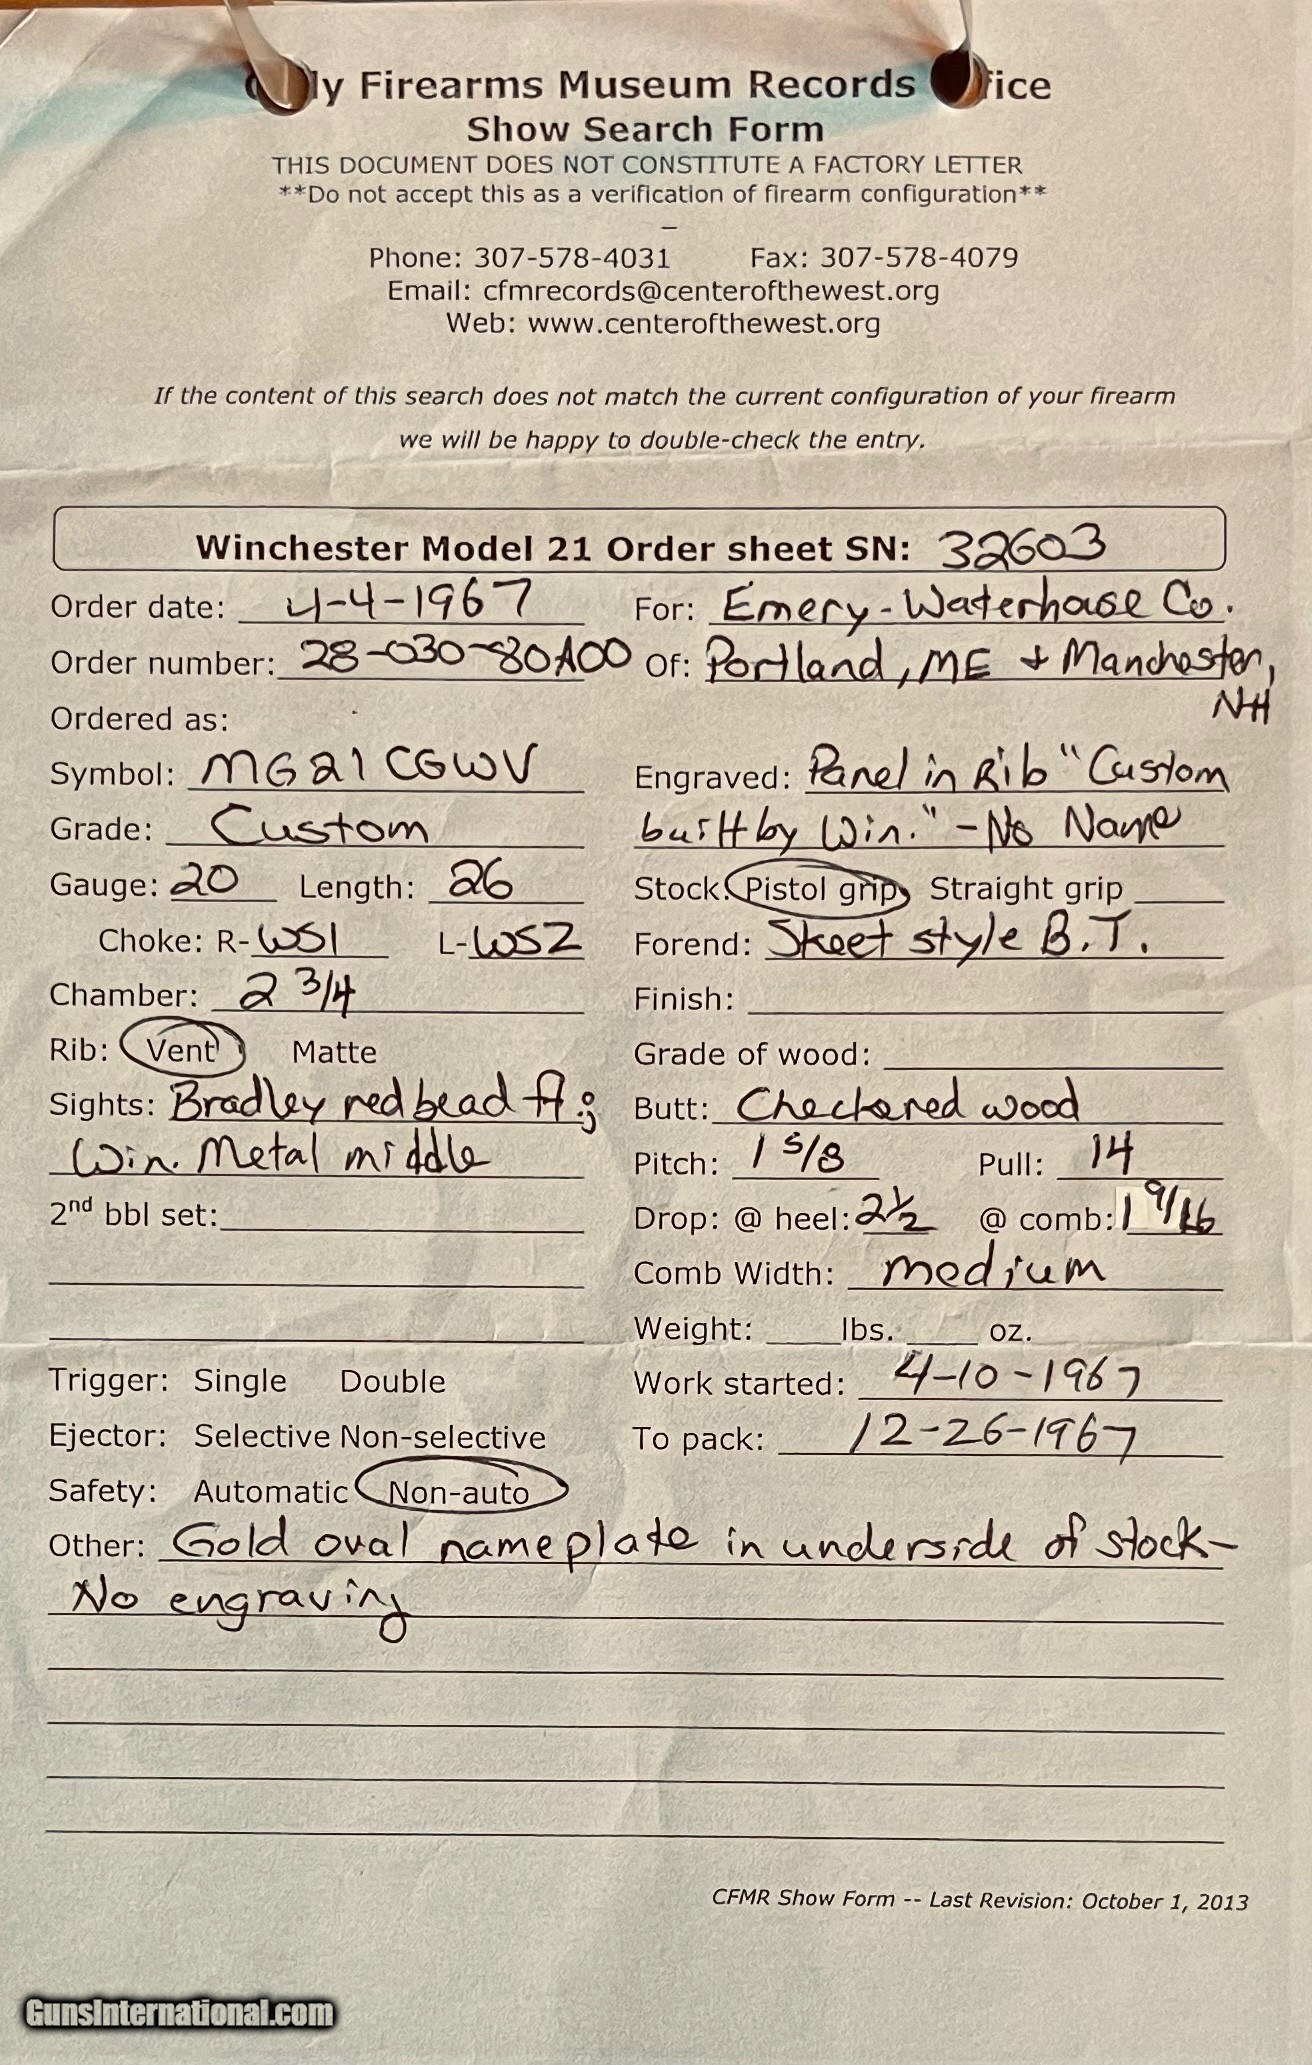 ly Firearms Museum Records fice
Show Search Form
THIS DOCUMENT DOES NOT CONSTITUTE A FACTORY LETTER
**Do not accept this as a verification of firearm configuration**
–
Phone: 307-578-4031 Fax: 307-578-4079
Email: cfmrecords@centerofthewest.org
Web: www.centerofthewest.org
If the content of this search does not match the current configuration of your firearm
we will be happy to double-check the entry.
Winchester Model 21 Order sheet SN: 32603
Order date: 4-4-1967 For: Emery-Waterhouse Co.
Order number: 28-030-80A00 Of: Portland, ME + Manchester,
NH
Ordered as:
Symbol: MG21CGWV Engraved: Panel in Rib "Custom
Grade: Custom built by Win." - No Name
Gauge: 20 Length: 26 Stock: Pistol grip Straight grip
Choke: R-WS1 L-WS2 Forend: Skeet style B.T.
Chamber: 2 3/4 Finish:
Rib: Vent Matte Grade of wood:
Sights: Bradley red bead ft.; Butt: Checkered wood
Win. Metal middle Pitch: 1 5/8 Pull: 14
2nd bbl set: Drop: @ heel: 2 1/2 @ comb: 1 9/16
Comb Width: medium
Weight: lbs. oz.
Trigger: Single Double Work started: 4-10-1967
Ejector: Selective Non-selective To pack: 12-26-1967
Safety: Automatic Non-auto
Other: Gold oval nameplate in underside of stock-
No engraving
CFMR Show Form -- Last Revision: October 1, 2013
GunsInternational.com